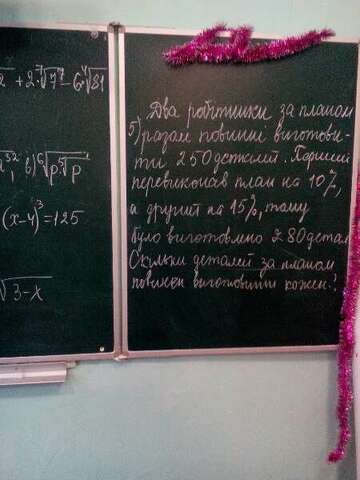 2 + 2·⁷√7⁷ - 6·⁴√81
³², б) ⁶√p·⁵√p
(x-4)³ = 125
√3-x
Два робітники за планом
5) разом повинні виготови-
ти 250 деталей. Перший
перевиконав план на 10%,
а другий на 15%, тому
було виготовлено 280 детал
Скільки деталей за планом
повинен виготовити кожен?